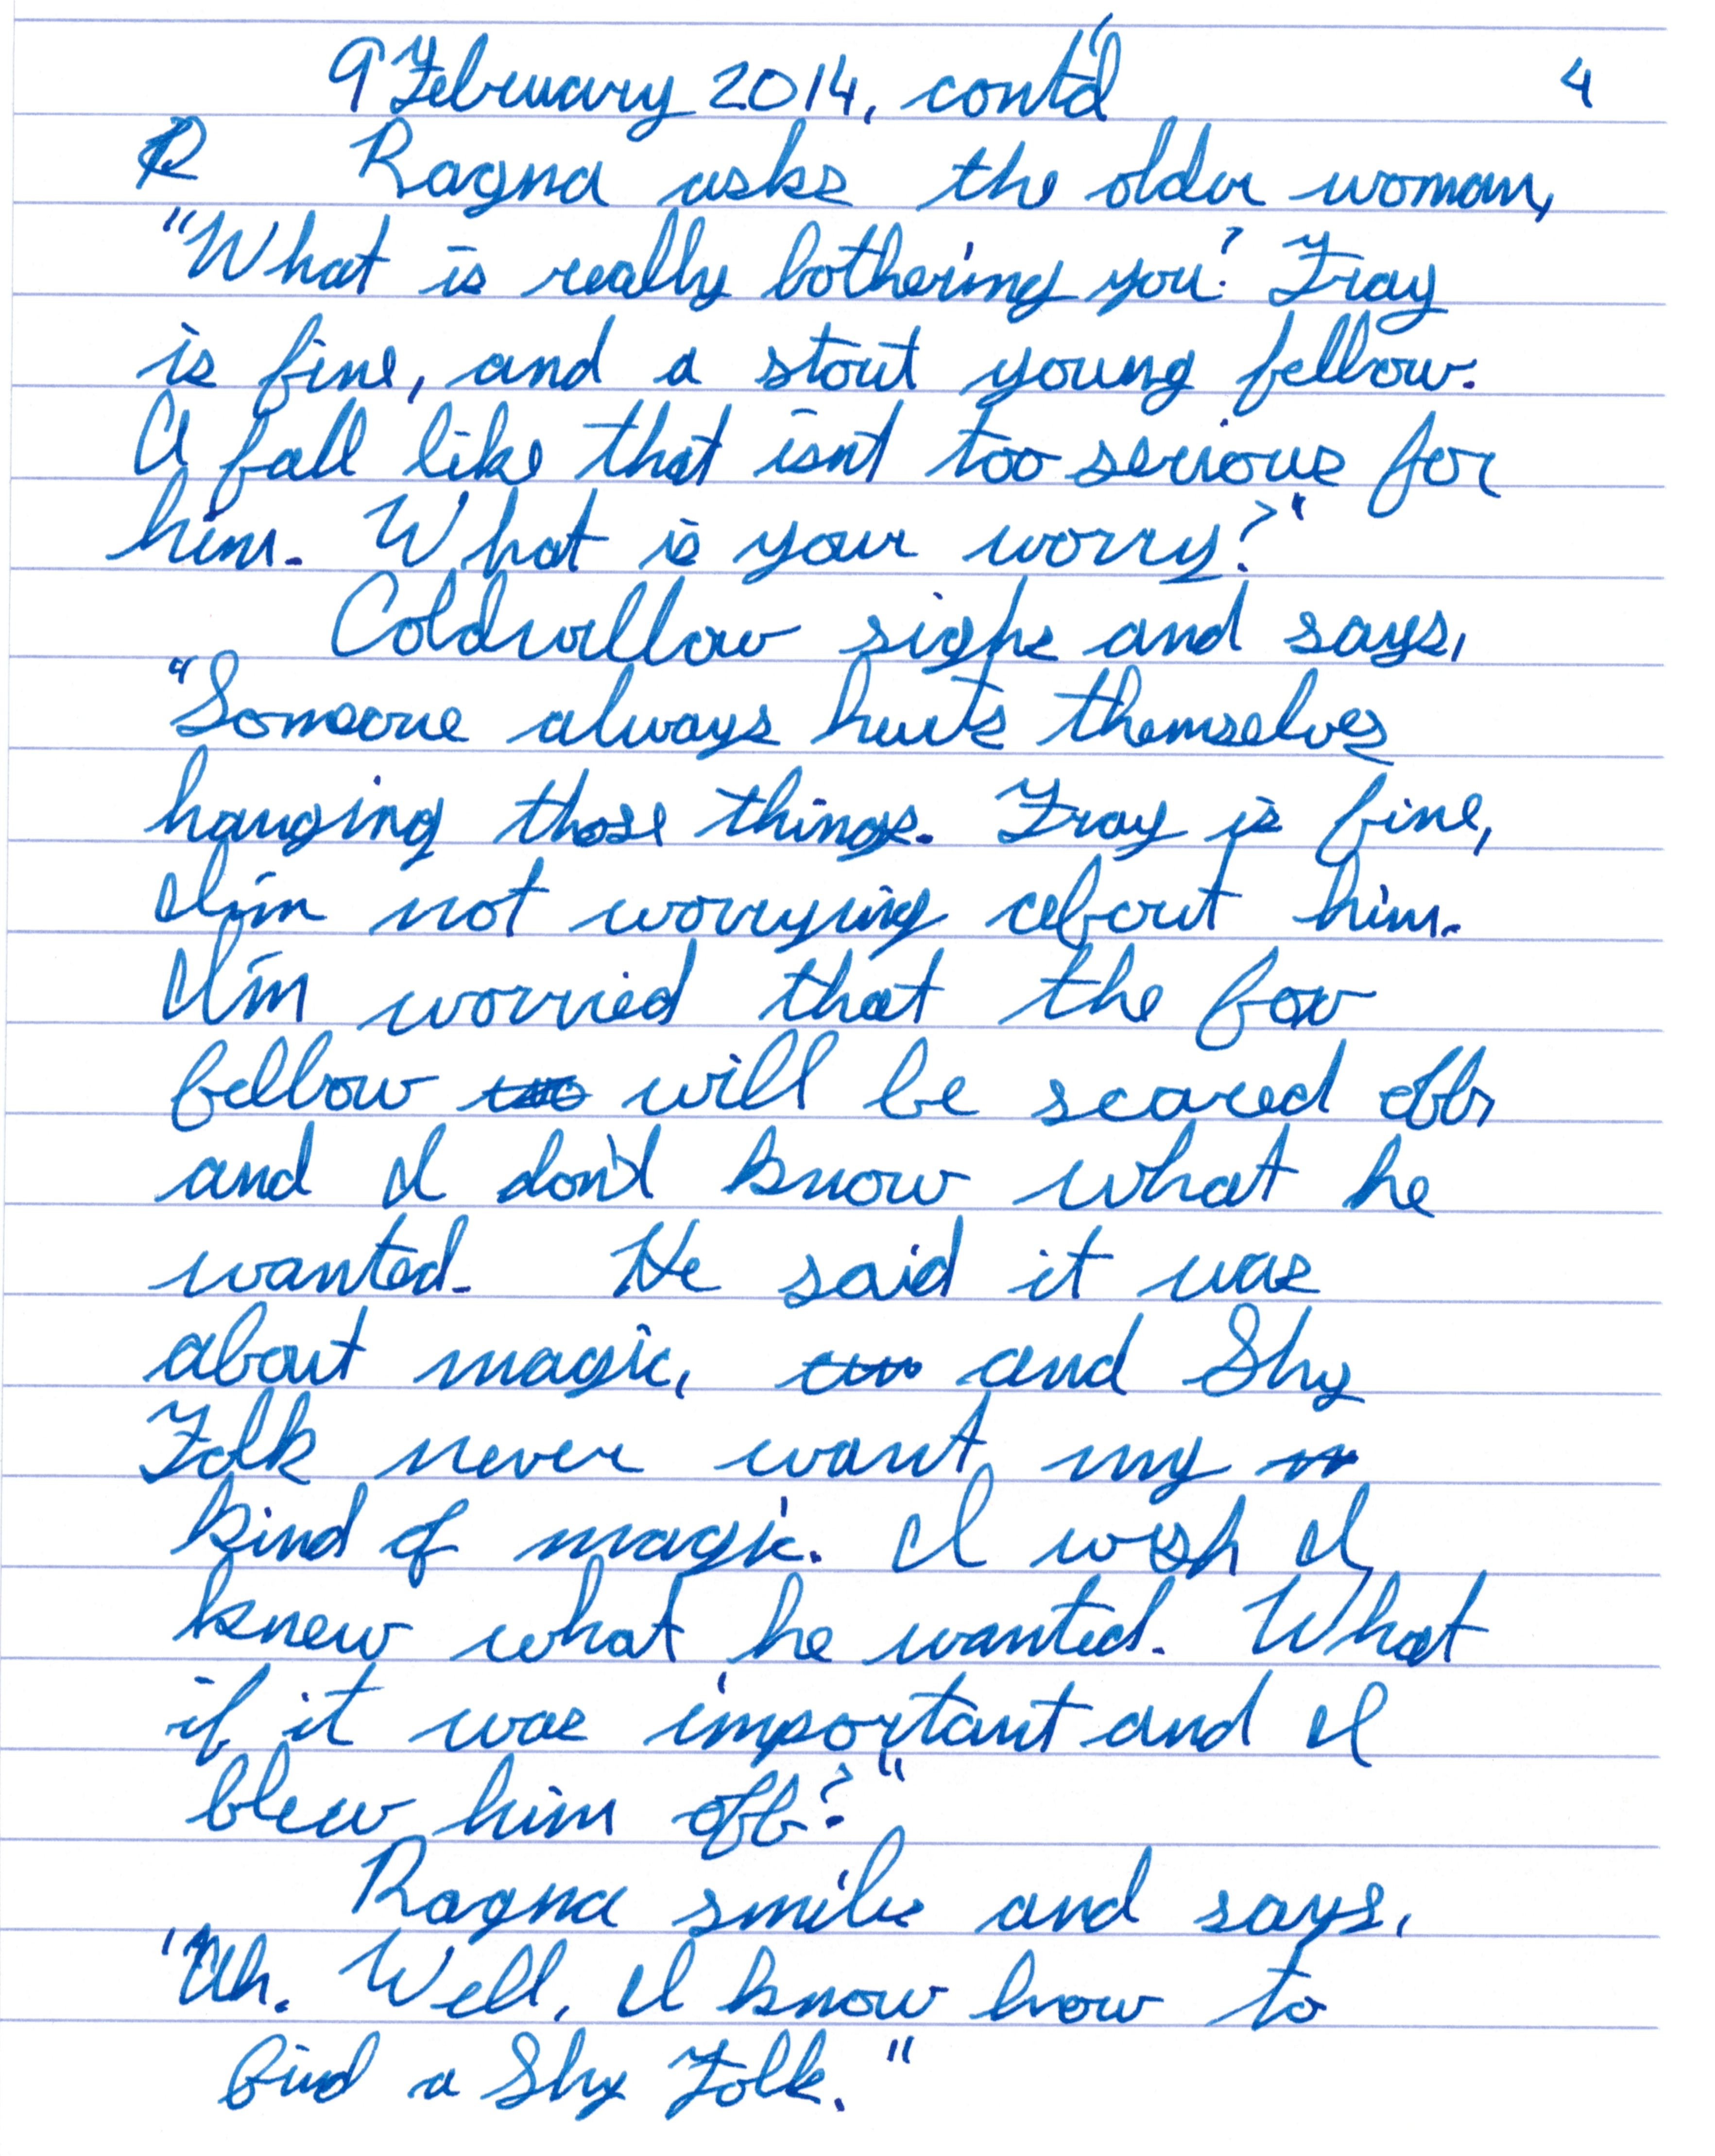 9 February 2014, cont'd 4
R Ragna asks the older woman,
"What is really bothering you? Fray
is fine, and a stout young fellow.
A fall like that isn't too serious for
him. What is your worry?"
Coldwillow sighs and says,
"Someone always hurts themselves
hanging those things. Fray is fine,
I'm not worrying about him.
I'm worried that the fox
fellow will be scared off,
and I don't know what he
wanted. He said it was
about magic, and Shy
Folk never want my
kind of magic. I wish I
knew what he wanted. What
if it was important and I
blew him off?"
Ragna smiles and says,
"Ah. Well, I know how to
find a Shy Folk."